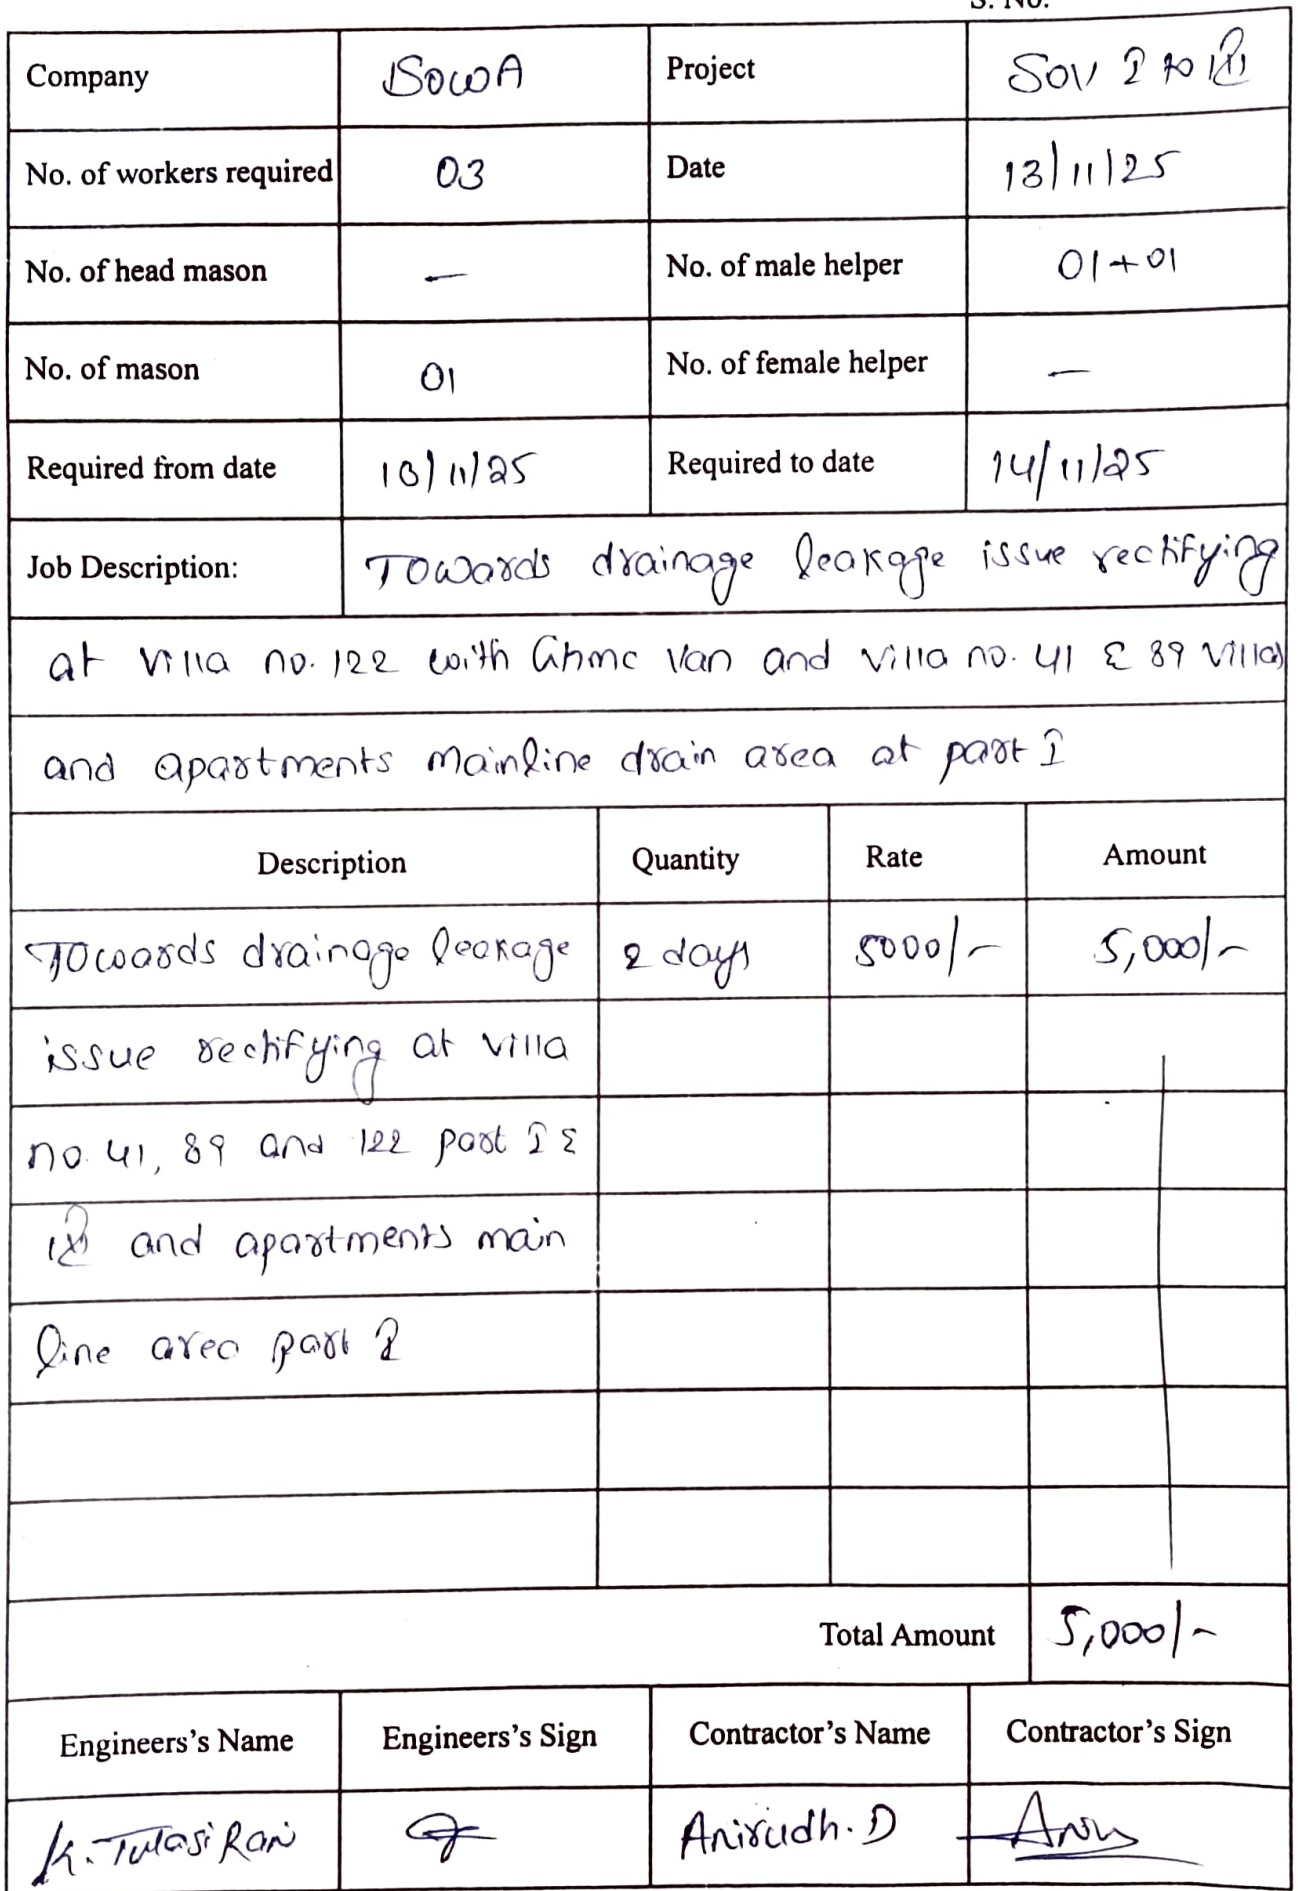 S. No.
Company SOWA Project SOV I to III
No. of workers required 03 Date 13/11/25
No. of head mason – No. of male helper 01+01
No. of mason 01 No. of female helper –
Required from date 13/11/25 Required to date 14/11/25
Job Description: Towards drainage leakage issue rectifying
at villa no. 122 with Ghmc Van and villa no. 41 & 89 villas
and apartments mainline drain area at part I
Description Quantity Rate Amount
Towards drainage leakage 2 days 5000/- 5,000/-
issue rectifying at villa
no. 41, 89 and 122 part I &
III and apartments main
line area part I
Total Amount 5,000/-
Engineers's Name Engineers's Sign Contractor's Name Contractor's Sign
K. Tulasi Rani Anirudh. D